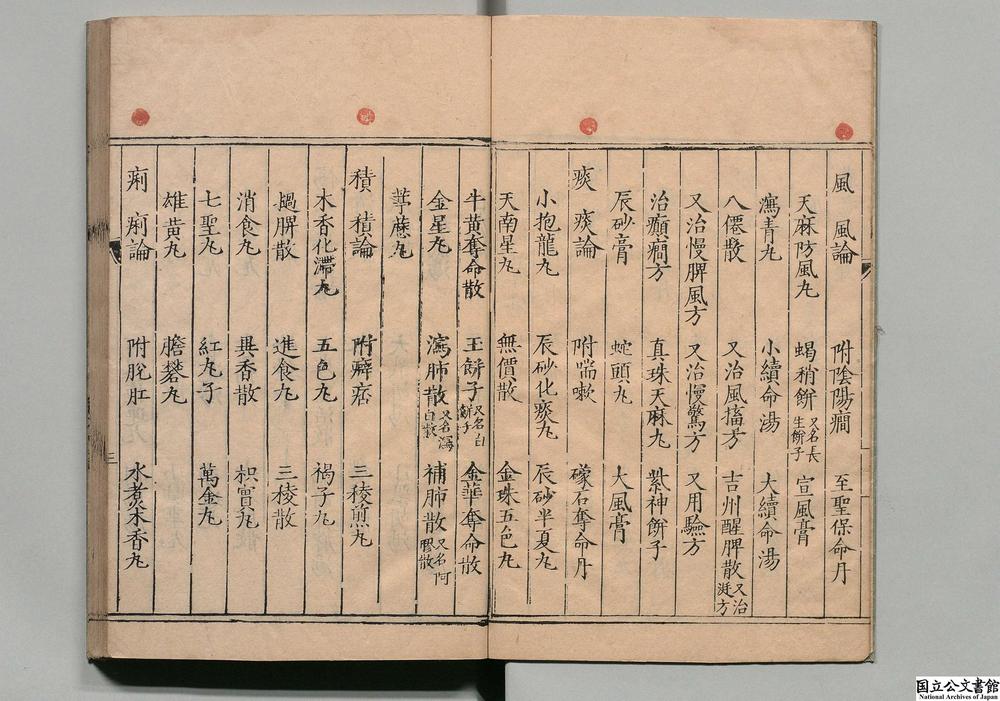 風 風論 附陰陽癇 至聖保命丹
天麻防風丸 蝎稍餅又名長生餅子 宣風膏
瀉青丸 小續命湯 大續命湯
八僊散 又治風搐方 吉州醒脾散又治涎方
又治慢脾風方 又治慢驚方 又用驗方
治癲癇方 真珠天麻丸 紫神餅子
辰砂膏 蛇頭丸 大風膏
痰 痰論 附喘嗽 礞石奪命丹
小抱龍丸 辰砂化痰丸 辰砂半夏丸
天南星丸 無價散 金珠五色丸
牛黄奪命散 玉餅子又名白餅子 金華奪命散
金星丸 瀉肺散又名瀉白散 補肺散又名阿膠散
葶藶丸
積 積論 附癖痞 三稜煎丸
木香化滯丸 五色丸 褐子丸
塌脾散 進食丸 三稜散
消食丸 異香散 枳實丸
七聖丸 紅丸子 萬金丸
雄黄丸 膽礬丸
痢 痢論 附脫肛 水煮木香丸
三
国立公文書館
National Archives of Japan